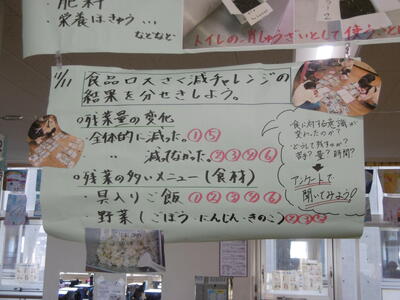 肥料
・栄養ほきゅう…
などなど
トイレのしょうざいとして使うこと
11/11
食品ロスさく減チャレンジの
結果を分せきしよう。
◎残菜量の変化
・全体的に減った。①⑤
〃 減ってなかった。②③④⑥
◎残菜の多いメニュー(食材)
・具入りご飯 ①②③④⑥
・野菜(ごぼう・にんじん・きのこ)②③⑤
・食に対する意識が
変わったのか?
・どうして残すのか?
苦手?量?時間?
アンケートで
聞いてみよう!